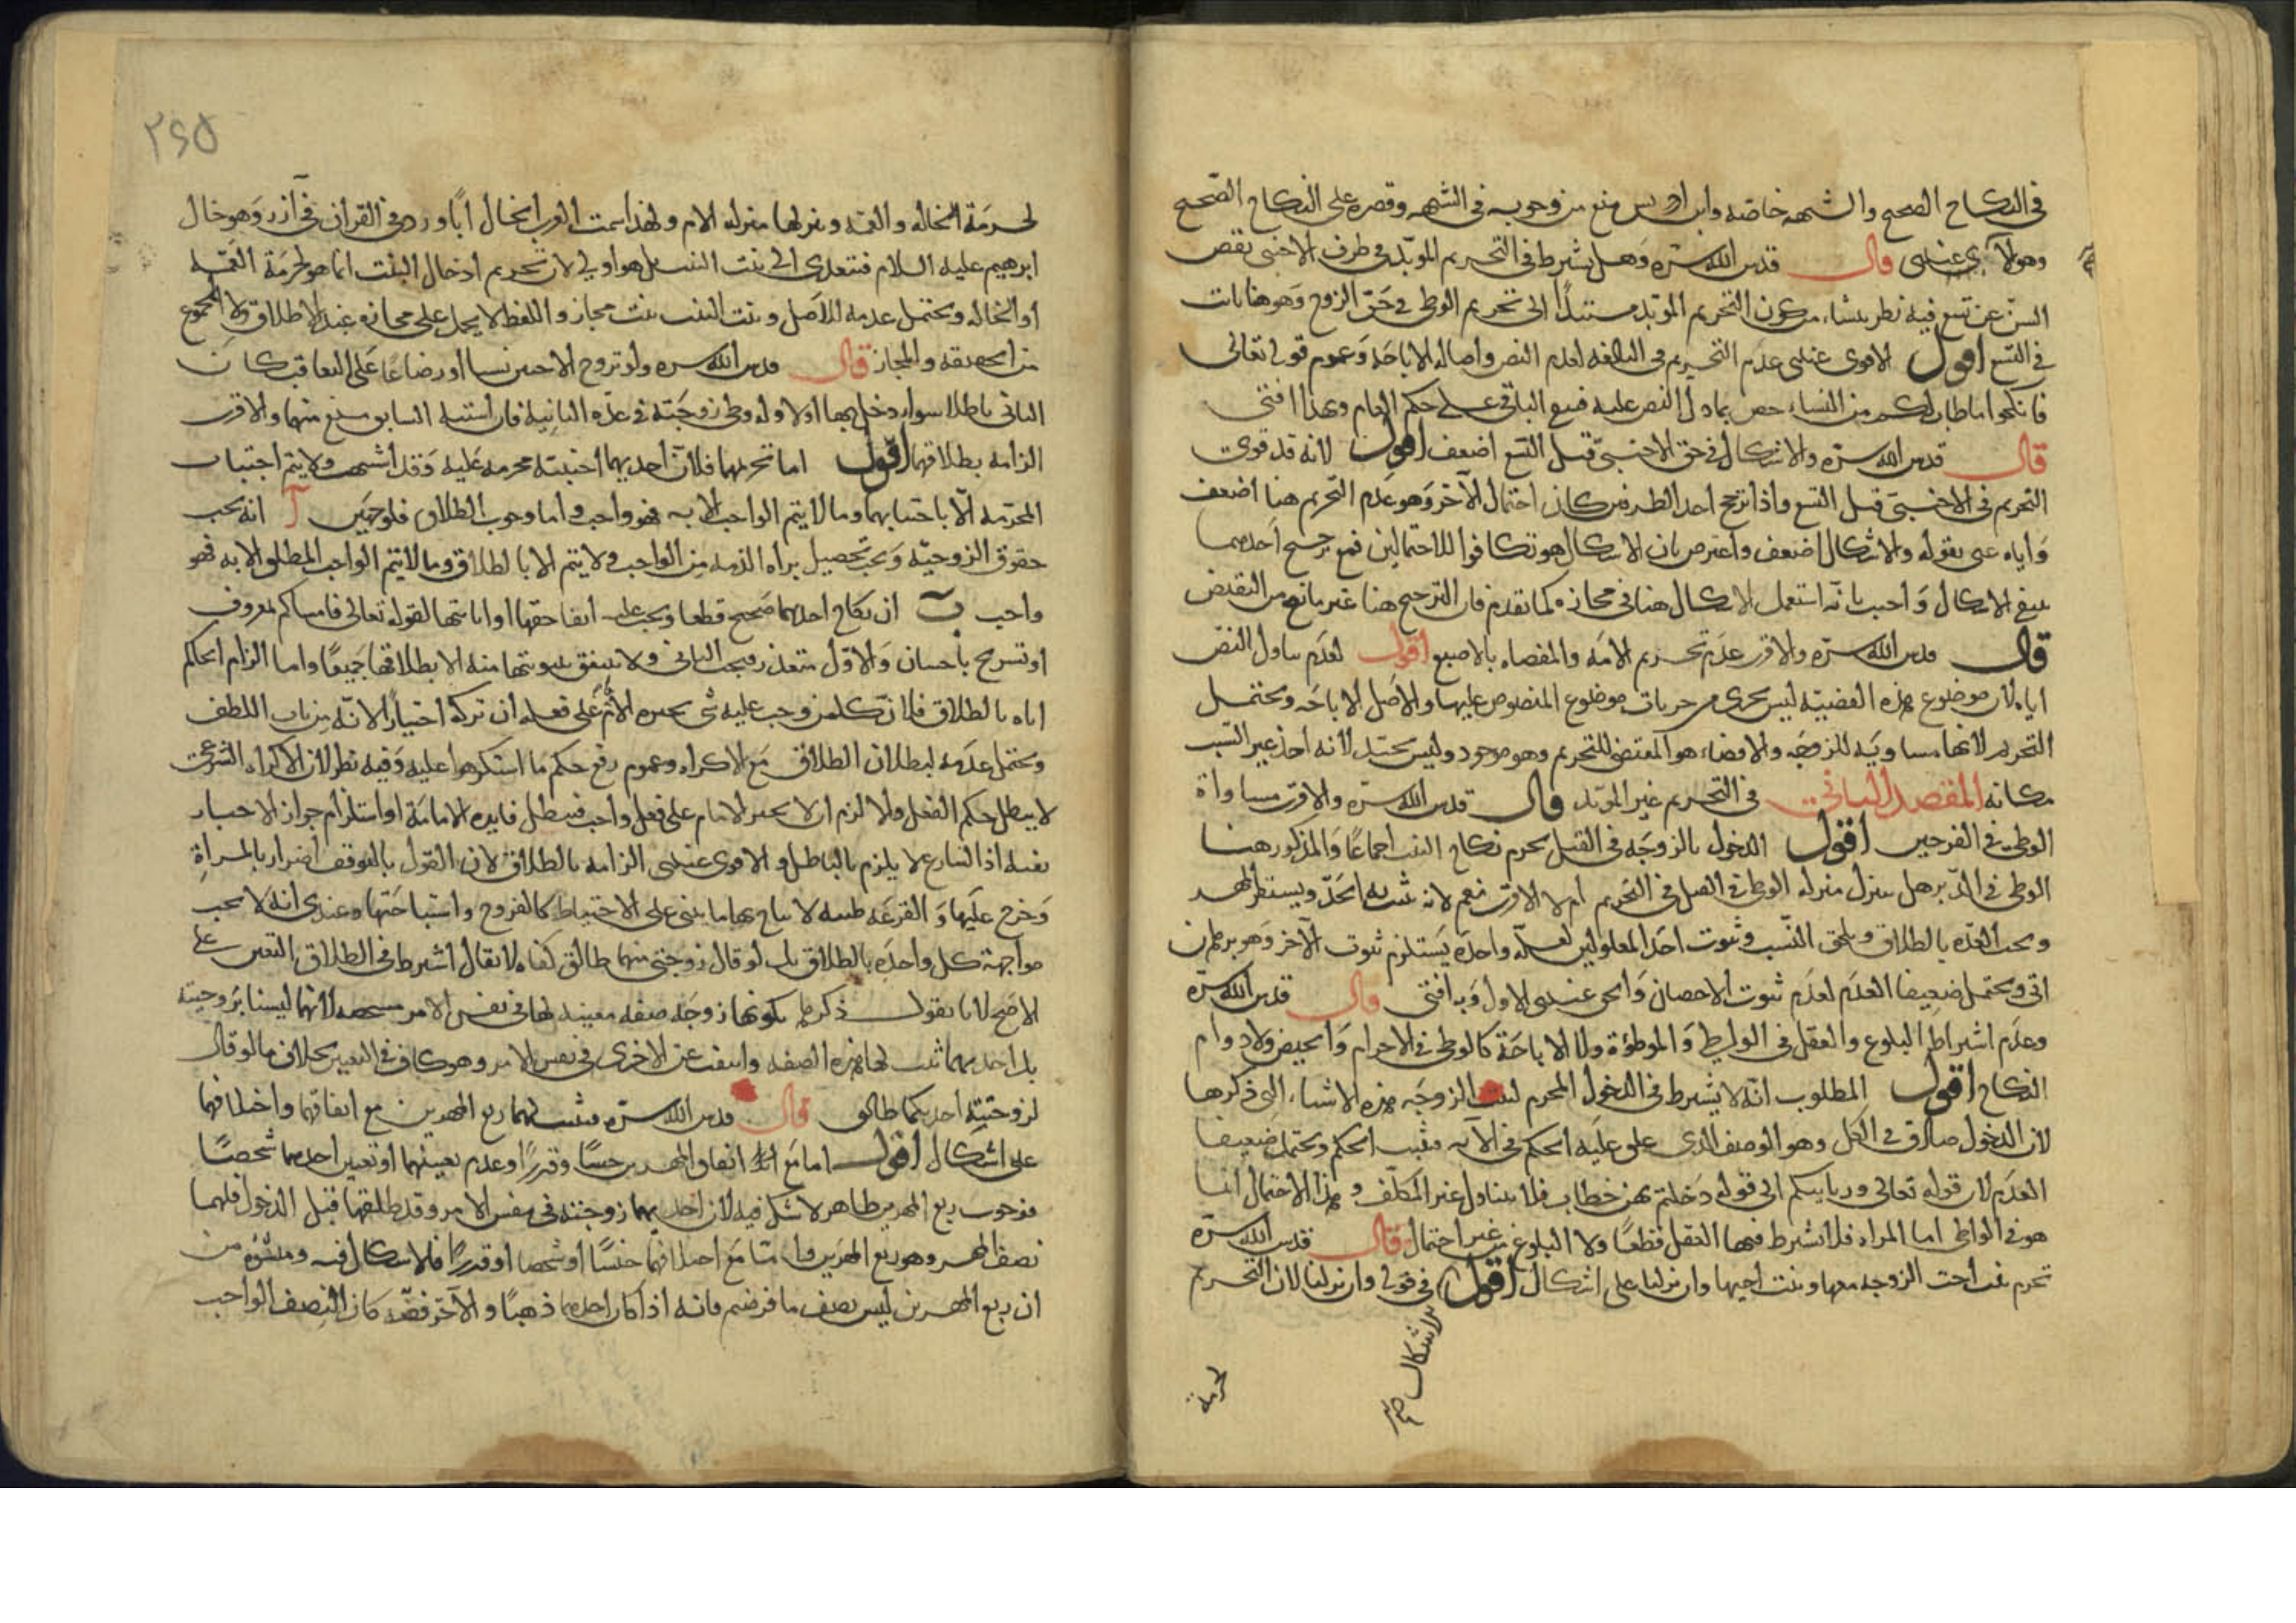 في النكاح الصحيح والشبهه خاصة وابن ادريس منع من وجوبه في الشبهه وقصره على النكاح الصحيح
وهو الاقوى عندى قال قدس الله سره وهل يشترط في التحريم المؤبد في طرف الاجنبى نقص
السن عن تسع فيه نظر ينشاء من كون التحريم المؤبد مستندًا الى تحريم الوطى في حق الزوج وهو هنا ثابت
في التسع اقول الاقوى عندى عدم التحريم في البالغه لعدم النص واصالة الاباحة وعموم قوله تعالى
فانكحوا ما طاب لكم من النساء خص بما دل النص عليه فبقى الباقى على حكم العام وبهذا افتى
قال قدس الله سره والاشكال في حق الاجنبى قبل التسع اضعف اقول لانه قد قوى
التحريم في الاجنبى قبل التسع واذا ترجح احد الطرفين كان احتمال الآخر وهو عدم التحريم هنا اضعف
واياه عنى بقوله والاشكال اضعف واعترض بان الاشكال هو تكافوا للاحتمالين فمع ترجيح احدهما
ينتفى الاشكال واجيب بانه استعمل الاشكال هنا في مجازه كما تقدم فان الترجيح هنا غير مانع من النقيض
قال قدس الله سره والاقرب عدم تحريم الامه والمفضاه بالاصبع اقول لعدم تناول النص
اياه لان موضوع هذه القضية ليس بجزئى من جزئيات موضوع المنصوص عليها والاصل الاباحه ويحتمل
التحريم لانها مساوية للزوجه والافضاء هو المقتضى للتحريم وهو موجود وليس بجيد لانه اخذ غير السبب
مكانه المقصد الثانى في التحريم غير المؤبد قال قدس الله سره والاقرب مساواة
الوطى في الفرجين اقول الدخول بالزوجه في القبل يحرم نكاح البنت اجماعًا والمذكور هنا
الوطى في الدبر هل يتنزل منزلة الوطى في القبل في التحريم ام لا الاقرب نعم لانه يثبت به الحد ويستقر المهر
ويجب العده بالطلاق ويلحق النسب وثبوت احد المعلولين لعلة واحده يستلزم ثبوت الآخر وهو برهان
انى ويحتمل ضعيفا العدم لعدم ثبوت الاحصان والحق عندى الاول وبه افتى قال قدس الله سره
وعدم اشتراط البلوغ والعقل في الواطى والموطؤة ولا الاباحة كالوطى في الاحرام والحيض ولا دوام
النكاح اقول المطلوب انه لا يشترط في الدخول المحرم لبنت الزوجه هذه الاشياء التى ذكرها
لان الدخول صادق في الكل وهو الوصف الذى علق عليه الحكم في الآيه فيثبت الحكم ويحتمل ضعيفا
العدم لان قوله تعالى وربايبكم الى قوله دخلتم بهن خطاب فلا يتناول غير المكلف وهذا الاحتمال انما
هو في الواطى اما المراه فلا يشترط فيها العقل قطعًا ولا البلوغ من غير احتمال قال قدس الله سره
تحرم بنت اخت الزوجه معها وبنت اخيها وان نزلتا على اشكال اقول في قوله وان نزلتا لان التحريم
الاشكال صح
لحرمة
٢٤٥
لحرمة الخاله والعمه وتنزلها منزله الام ولهذا سمت العرب الخال ابًا وورد في القرآن في آزر وهو خال
ابرهيم عليه السلام فتتعدى الى بنت البنت بل هو اولى لان تحريم ادخال البنت انما هو لحرمة العمه
أو الخاله ويحتمل عدمه للاصل وبنت البنت بنت مجاز واللفظ لا يحمل على مجازه عند الاطلاق ولا المجموع
من الحقيقه والمجاز قال قدس الله سره ولو تزوج الاختين نسبا او رضاعًا على التعاقب كان
الثانى باطلا سواء دخل بها اولا وله وطى زوجته في عدة الثانية فان اشتبه السابق منع منهما والاقرب
الزامه بطلاقهما اقول اما تحريمهما فلان احديهما اجنبية محرمه عليه وقد اشتبهت ولا يتم اجتناب
المحرمه الا باجتنابهما وما لا يتم الواجب الا به فهو واجب واما وجوب الطلاق فلوجهين آ انه يجب
حقوق الزوجية ويجب تحصيل براءة الذمه من الواجب ولا يتم الا بالطلاق وما لا يتم الواجب المطلق الا به فهو
واجب ب ان نكاح احديهما صحيح قطعا ويجب عليه ايفا حقها او ابانتها لقوله تعالى فامساك بمعروف
او تسريح باحسان والاول متعذر فيجب الثانى ولا يتحقق بينونتها منه الا بطلاقهما جميعًا واما الزام الحاكم
اياه بالطلاق فلان كل من وجب عليه شى يجبره الامام على فعله ان تركه اختيارًا لانه من باب اللطف
ويحتمل عدمه لبطلان الطلاق مع الاكراه وعموم رفع حكم ما استكرهوا عليه وفيه نظر لان الاكراه الشرعى
لا يبطل حكم الفعل والا لزم ان لا يجبر الامام على فعل واجب فتبطل فايده الامامة او استلزام جواز الاجبار
نفيه اذ الشارع لا يلزم بالباطل والاقوى عندى الزامه بالطلاق لان القول بالتوقف اضرار بالمراة
وحرج عليها والقرعه طنيه لا يباح بها ما يبنى على الاحتياط كالفروج واستباحتها وعندى انه لا يجب
مواجهة كل واحده بالطلاق بل لو قال زوجتى منهما طالق كفاه لا يقال اشترط في الطلاق التعيين على
الاصح لانا نقول ذكرها بكونها زوجه صفه معينه لها في نفس الامر لانهما ليستا بزوجيته
بل احديهما ثبت لها هذه الصفه وانتفت عن الاخرى في نفس الامر وهو كاف في التعيين بخلاف ما لو قال
لزوجتيه احديكما طالق قال قدس الله سره فيثبت لهما ربع المهرين مع اتفاقهما واختلافهما
على اشكال اقول اما مع اتفاق المهرين جنسًا وقدرًا وعدم تعيينهما او تعيين احدهما شخصًا
فوجوب ربع المهرين ظاهر لا شك فيه لان احديهما زوجته في نفس الامر وقد طلقها قبل الدخول فلهما
نصف المهر وهو ربع المهرين واما مع اختلافهما جنسًا او شخصا او قدرًا فلاشكال فيه ومنشؤه من
ان ربع المهرين ليس نصف ما فرضتم فانه اذا كان احدهما ذهبًا والآخر فضه كان النصف الواجب